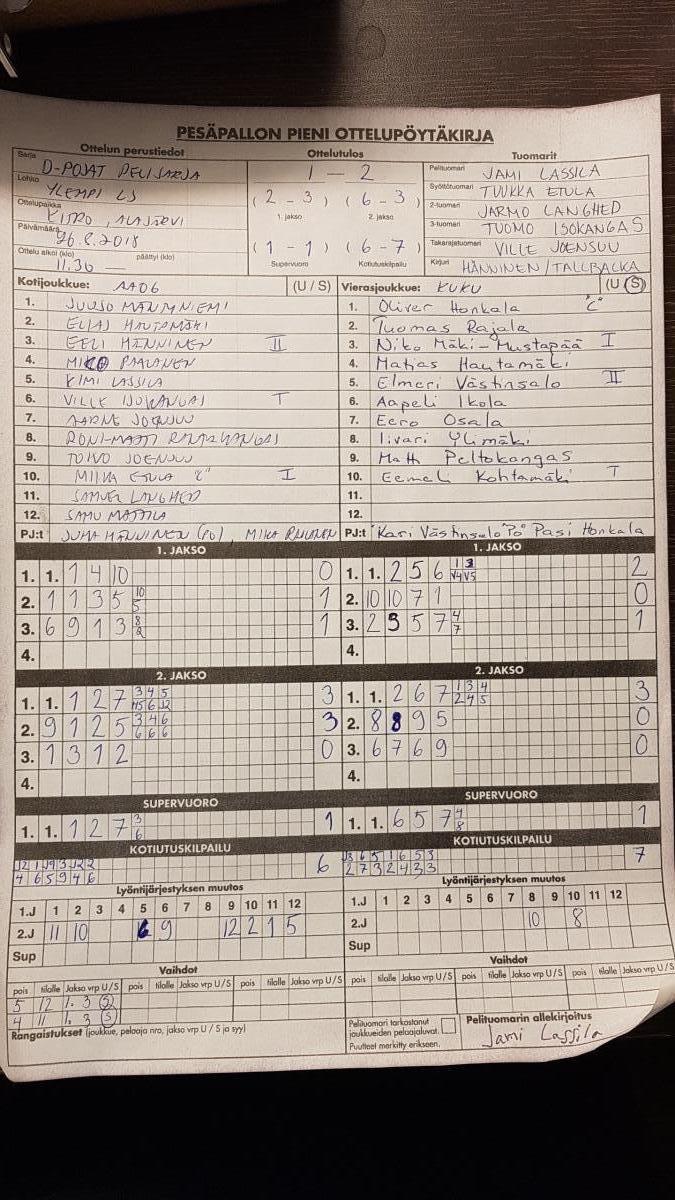 PESÄPALLON PIENI OTTELUPÖYTÄKIRJA
Ottelun perustiedot Ottelutulos Tuomarit
Sarja D-POJAT PELISARJA
Lohko YLEMPI LS
Ottelupaikka KISRO, ALAJÄRVI
Päivämäärä 26.8.2018
Ottelu alkoi (klo) päättyi (klo)
11.30 —
1 — 2
(2 - 3) (6 - 3)
1. jakso 2. jakso
(1 - 1) (6 - 7)
Supervuoro Kotiutuskilpailu
Pelituomari JAMI LASSILA
Syöttötuomari TUUKKA ETULA
2-tuomari JARMO LANGHED
3-tuomari TUOMO ISOKANGAS
Takarajatuomari VILLE JOENSUU
Kirjuri HÄNNINEN/TALLBACKA
Kotijoukkue: AA06 (U / S)
1. JUUSO MÄNTYNIEMI
2. ELIAS HAUTAMÄKI
3. EELI HÄNNINEN II
4. MIKO PAALANEN
5. KIMI LASSILA
6. VILLE ISOKANGAS T
7. AARNE JOENSUU
8. RONI-MATTI RANTAKANGAS
9. TOIVO JOENSUU
10. MIIKA ETULA "C" I
11. SAMUEL LANGHED
12. SAMU MATTILA
PJ:t JUHA HÄNNINEN (PJ), MIKA
Vierasjoukkue: KUKU (U / S)
1. Oliver Honkala "C"
2. Tuomas Rajala
3. Niko Mäki-Mustapää I
4. Matias Hautamäki
5. Elmeri Västinsalo II
6. Aapeli Ikola
7. Eero Osala
8. Iivari Ylimäki
9. Matti Peltokangas
10. Eemeli Kohtamäki T
11.
12.
PJ:t "Kari Västinsalo "PJ" Pasi Honkala
1. JAKSO
1. 1. 1 4 10 0
2. 1 1 3 5 10 5 1
3. 6 9 1 3 8 2 1
4.
1. JAKSO
1. 1. 2 5 6 1 3 V4 V5 2
2. 10 10 7 1 0
3. 2 3 5 7 4 7 1
4.
2. JAKSO
1. 1. 1 2 7 3 4 5 15 6 12 3
2. 9 1 2 5 3 4 6 6 6 6 3
3. 1 3 1 2 0
4.
2. JAKSO
1. 1. 2 6 7 1 3 4 2 4 5 3
2. 8 8 9 5 0
3. 6 7 6 9 0
4.
SUPERVUORO
1. 1. 1 2 7 3 6 1
SUPERVUORO
1. 1. 6 5 7 4 8 1
KOTIUTUSKILPAILU
4 6 5 9 4 6 6
KOTIUTUSKILPAILU
3 6 5 1 6 5 3
2 7 3 2 4 3 3 7
Lyöntijärjestyksen muutos
1.J 1 2 3 4 5 6 7 8 9 10 11 12
2.J 11 10 6 9 12 2 1 5
Sup
Lyöntijärjestyksen muutos
1.J 1 2 3 4 5 6 7 8 9 10 11 12
2.J 10 8
Sup
Vaihdot
pois tilalle Jakso vrp U/S pois tilalle Jakso vrp U/S pois tilalle Jakso vrp U/S
5 12 1. 3 S
4 11 1. 3 S
Vaihdot
pois tilalle Jakso vrp U/S pois tilalle Jakso vrp U/S pois tilalle Jakso vrp U/S
Rangaistukset (joukkue, pelaaja nro, jakso vrp U / S ja syy)
Pelituomari tarkastanut
joukkueiden peliasjaluvat.
Puutteet merkitty erikseen.
Pelituomarin allekirjoitus
Jami Lassila